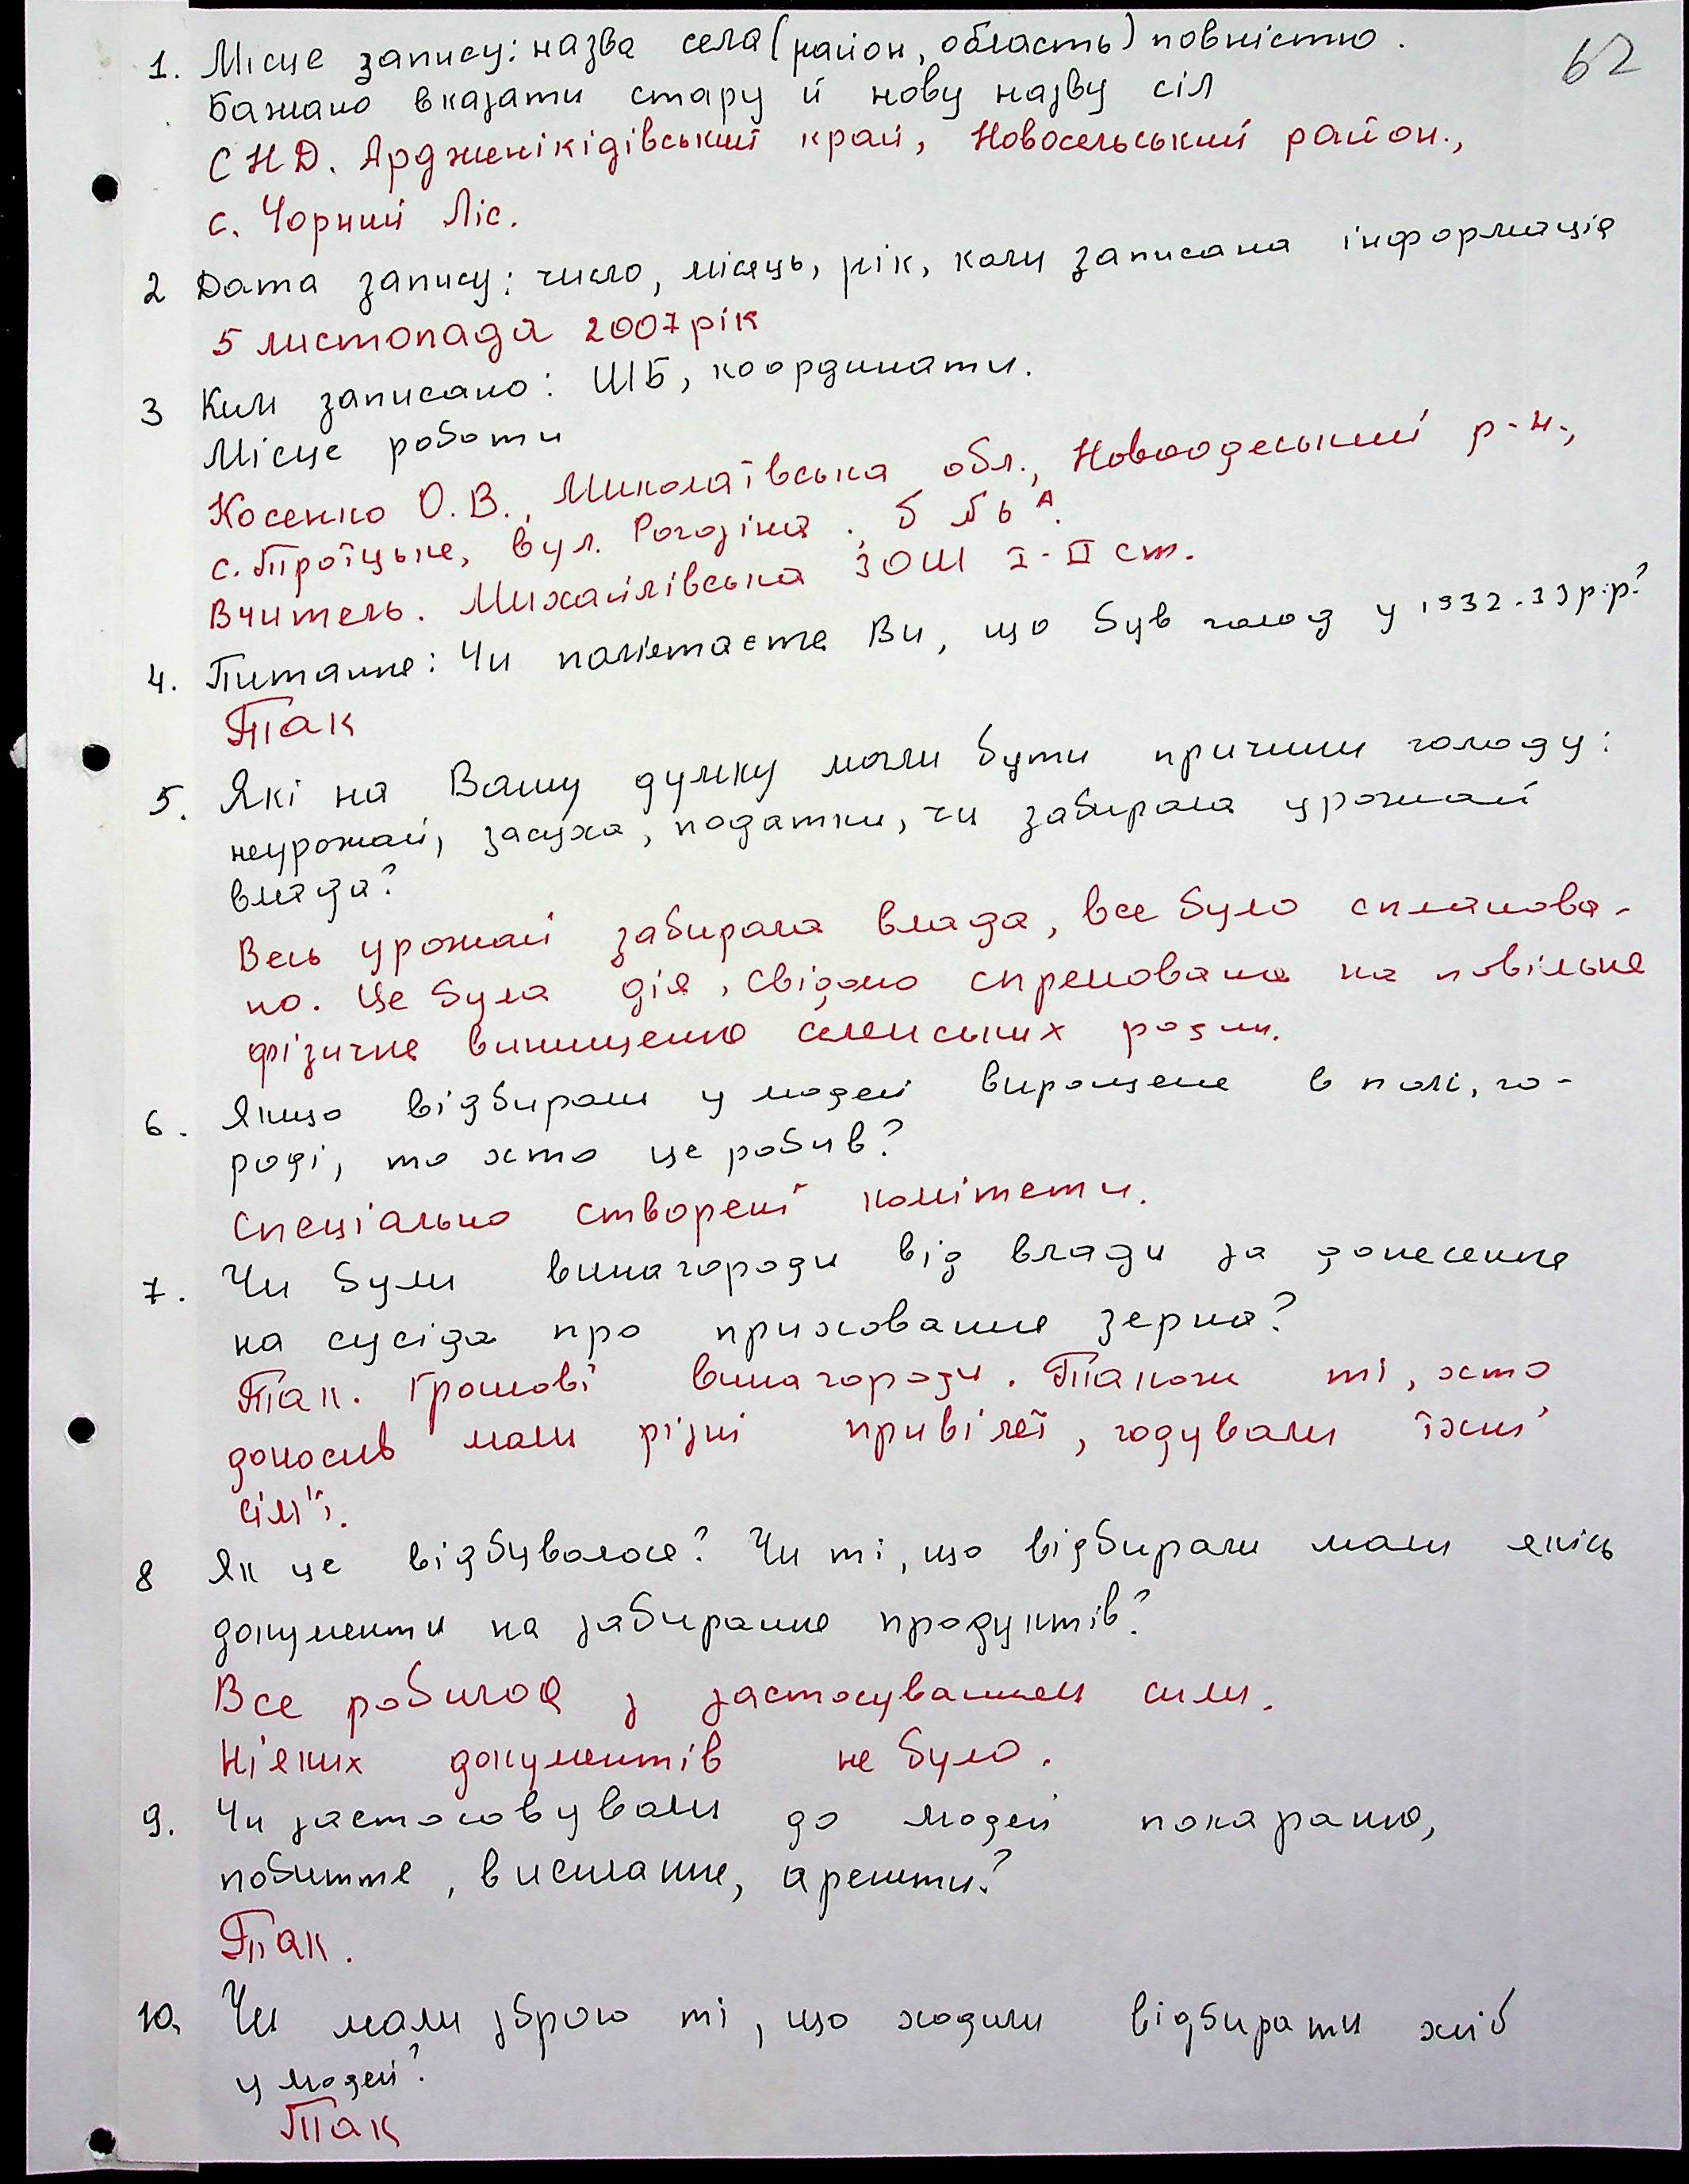 62
1. Місце запису: назва села (район, область) повністю.
Бажано вказати стару й нову назву сіл
СНД. Ардженікідівський край, Новосельський район.,
с. Чорний Ліс.
2 Дата запису: число, місяць, рік, коли записана інформація
5 листопада 2007 рік
3 Ким записано: ШБ, координати.
Місце роботи
Косенко О.В., Миколаївська обл., Новоодеський р-н.,
с. Троїцьке, вул. Рогозіна
Вчитель. Михайлівська ЗОШ І-ІІ ст.
4. Питання: Чи пам'ятаєте Ви, що був голод у 1932-33 р.р?
Так
5. Які на Вашу думку могли бути причини голоду:
неурожай, засуха, податки, чи забирала урожай
влада?
Весь урожай забирала влада, все було спланова-
но. Це була дія, свідомо спрямована на повільне
фізичне винищення селенських родин.
6. Якщо відбирали у людей вирощене в полі, го-
роді, то хто це робив?
Спеціально створені комітети.
7. Чи були винагороди від влади за донесення
на сусіда про приховання зерна?
Так. Грошові винагороди. Також ті, хто
доносив мали різні привілеї, годували їхні
сім'ї.
8 Як це відбувалося? Чи ті, що відбирали мали якісь
документи на забирання продуктів?
Все робилося з застосуванням сили.
Ніяких документів не було.
9. Чи застосовували до людей покарання,
побиття, висилання, арешти?
Так.
10. Чи мали зброю ті, що ходили відбирати хліб
у людей?
Так